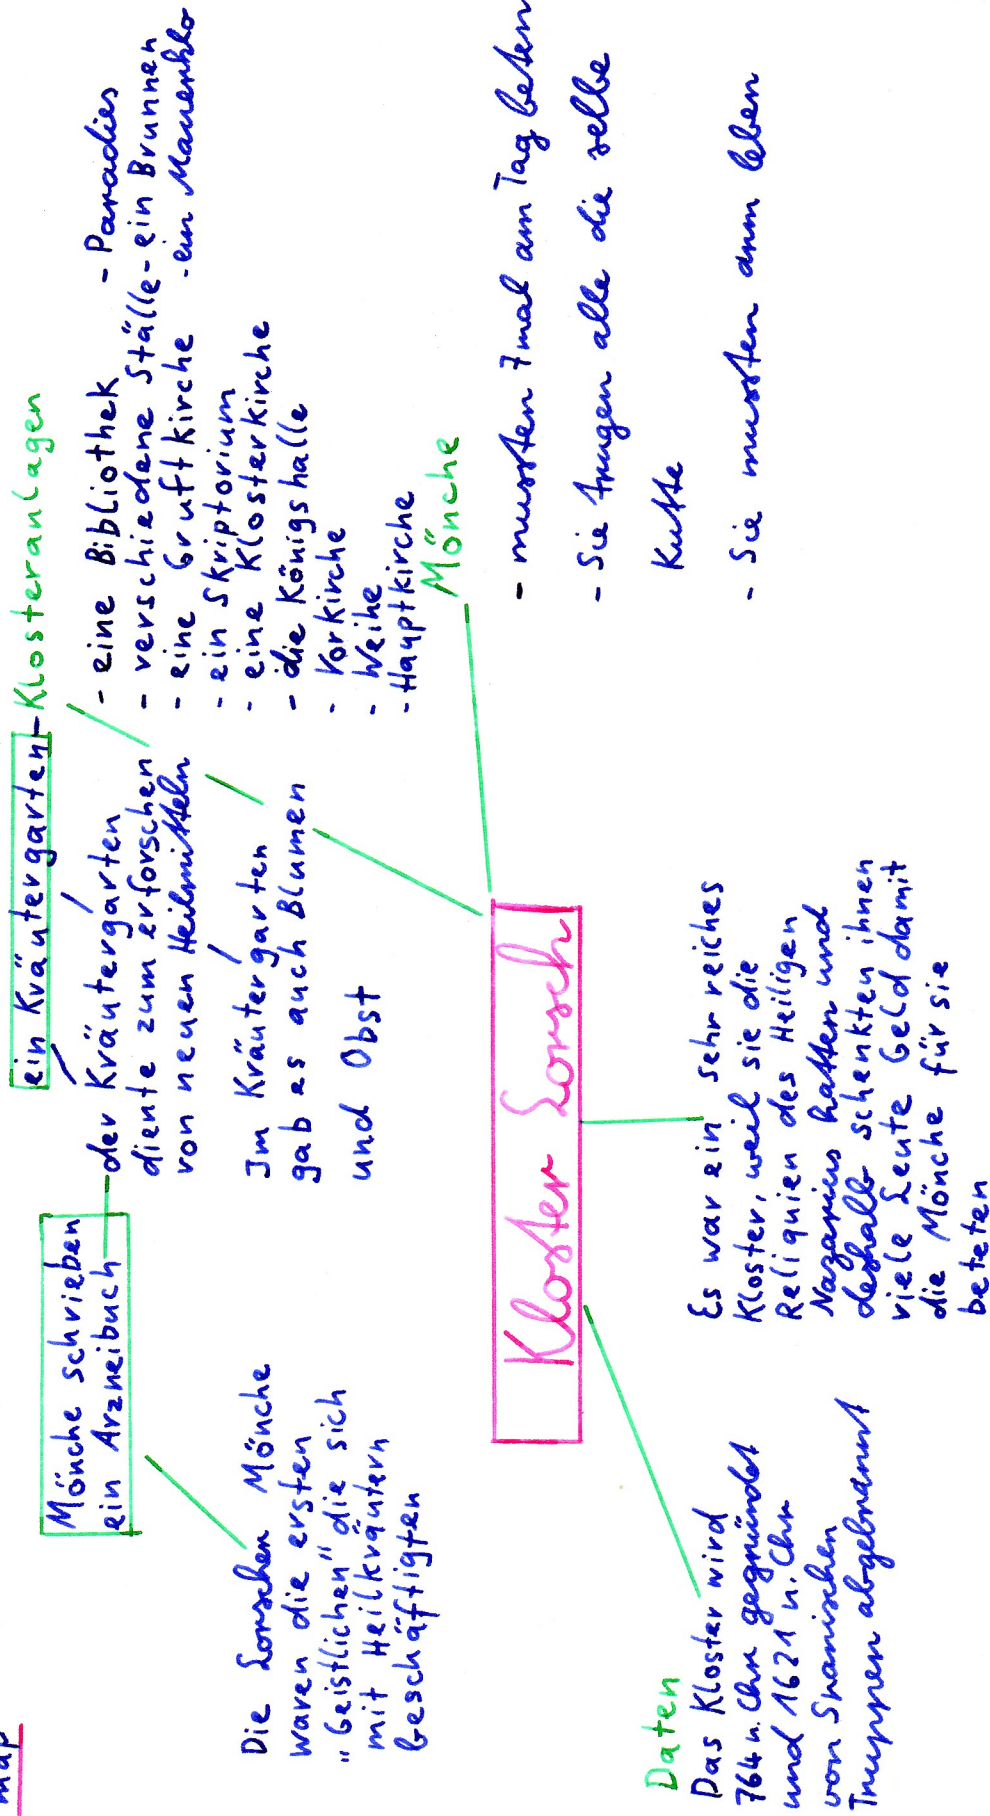 map
Mönche schrieben
ein Arzneibuch
Die Lorscher Mönche
waren die ersten
"Geistlichen" die sich
mit Heilkräutern
beschäftigten
ein Kräutergarten
der Kräutergarten
diente zum erforschen
von neuen Heilmitteln
Im Kräutergarten
gab es auch Blumen
und Obst
Klosteranlagen
- eine Bibliothek - Paradies
- verschiedene Ställe - ein Brunnen
- eine Gruftkirche - ein Mauerklo
- ein Skriptorium
- eine Klosterkirche
- die Königshalle
- Vorkirche
- Weihe
- Hauptkirche
Mönche
- mussten 7mal am Tag beten
- Sie trugen alle die selbe
Kutte
- Sie mussten arm leben
Kloster Lorsch
Es war ein sehr reiches
Kloster, weil sie die
Reliquien des Heiligen
Nazarius hatten und
deshalb schenkten ihnen
viele Leute Geld damit
die Mönche für sie
beteten
Daten
Das Kloster wird
764 n. Chr gegründet
und 1621 n. Chr
von Spanischen
Truppen abgebrannt